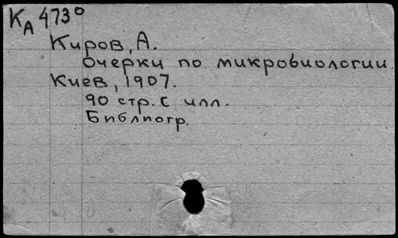 КА 4730
Киров, А.
Очерки по микробиологии.
Киев, 1907.
90 стр. с илл.
Библиогр.